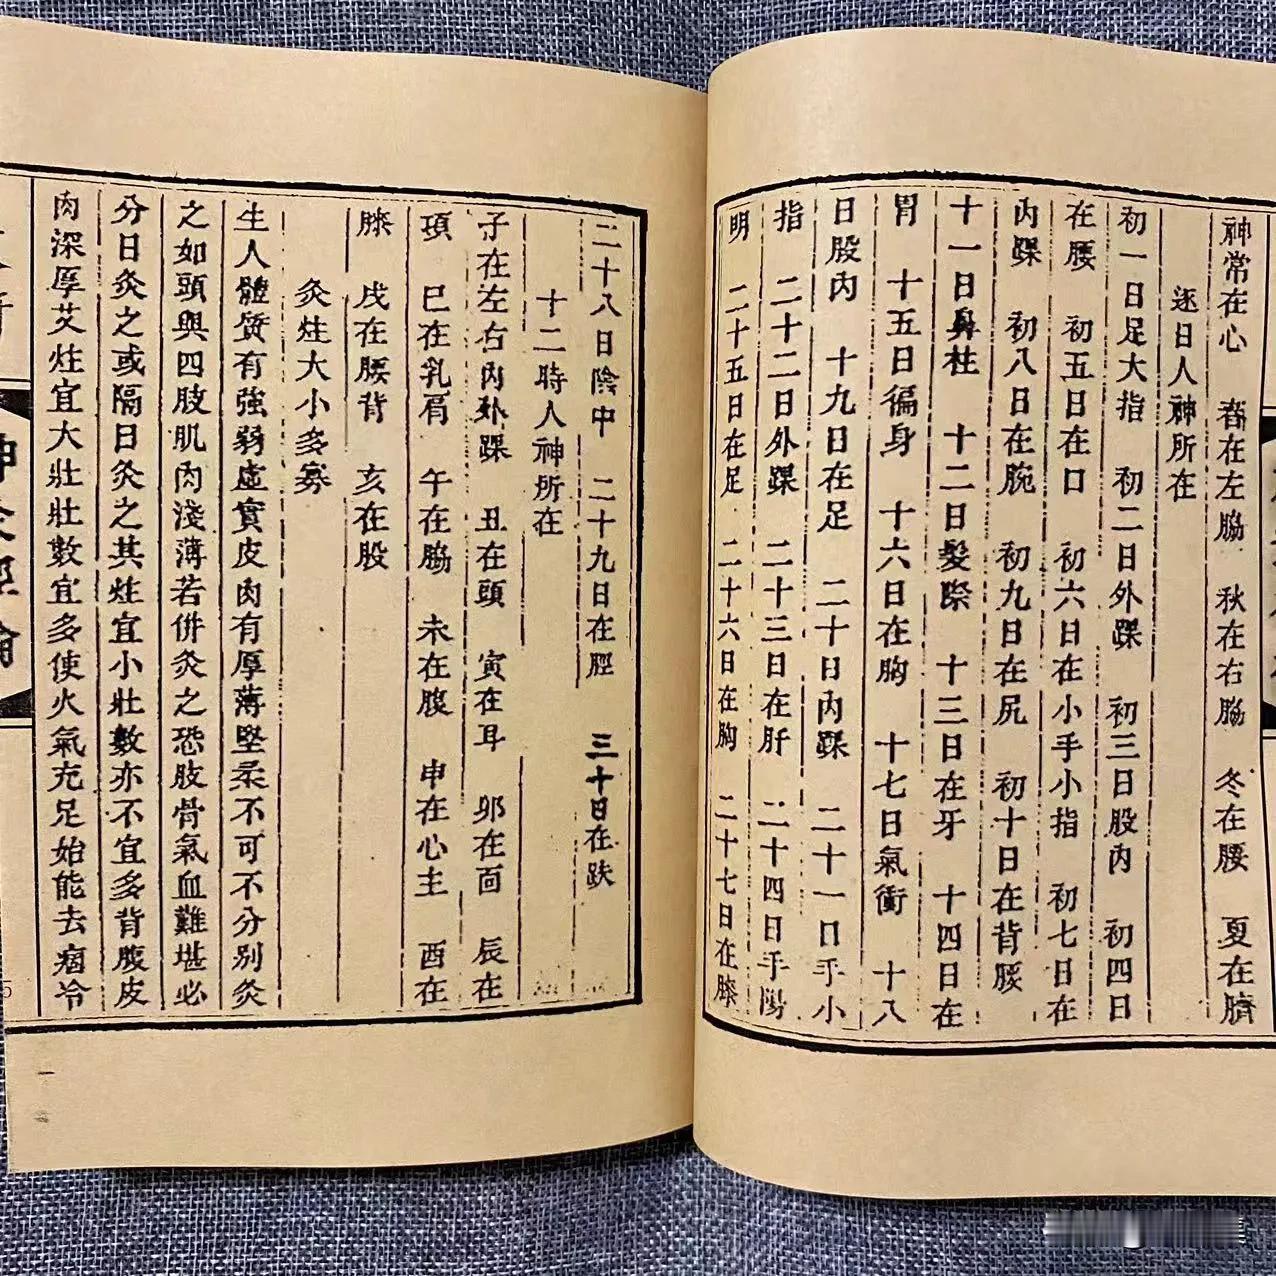 神常在心　春在左脇　秋在右脇　冬在腰　夏在臍
逐日人神所在
初一日足大指　初二日外踝　初三日股内　初四日
在腰　初五日在口　初六日在小手小指　初七日在
内踝　初八日在腕　初九日在尻　初十日在背腰
十一日鼻柱　十二日髮際　十三日在牙　十四日在
胃　十五日徧身　十六日在胸　十七日氣衝　十八
日股内　十九日在足　二十日内踝　二十一日手小
指　二十二日外踝　二十三日在肝　二十四日手陽
明　二十五日在足　二十六日在胸　二十七日在膝
二十八日陰中　二十九日在脛　三十日在趺
十二時人神所在
子在左右内外踝　丑在頭　寅在耳　卯在面　辰在
項　巳在乳肩　午在脇　未在腹　申在心主　酉在
膝　戌在腰背　亥在股
灸炷大小多寡
生人體質有強弱虛實皮肉有厚薄堅柔不可不分别灸
之如頭與四肢肌肉淺薄若併灸之恐肢骨氣血難堪必
分日灸之或隔日灸之其炷宜小壯數亦不宜多背腹皮
肉深厚艾炷宜大壯壯數宜多使火氣充足始能去痼冷
神灸經綸